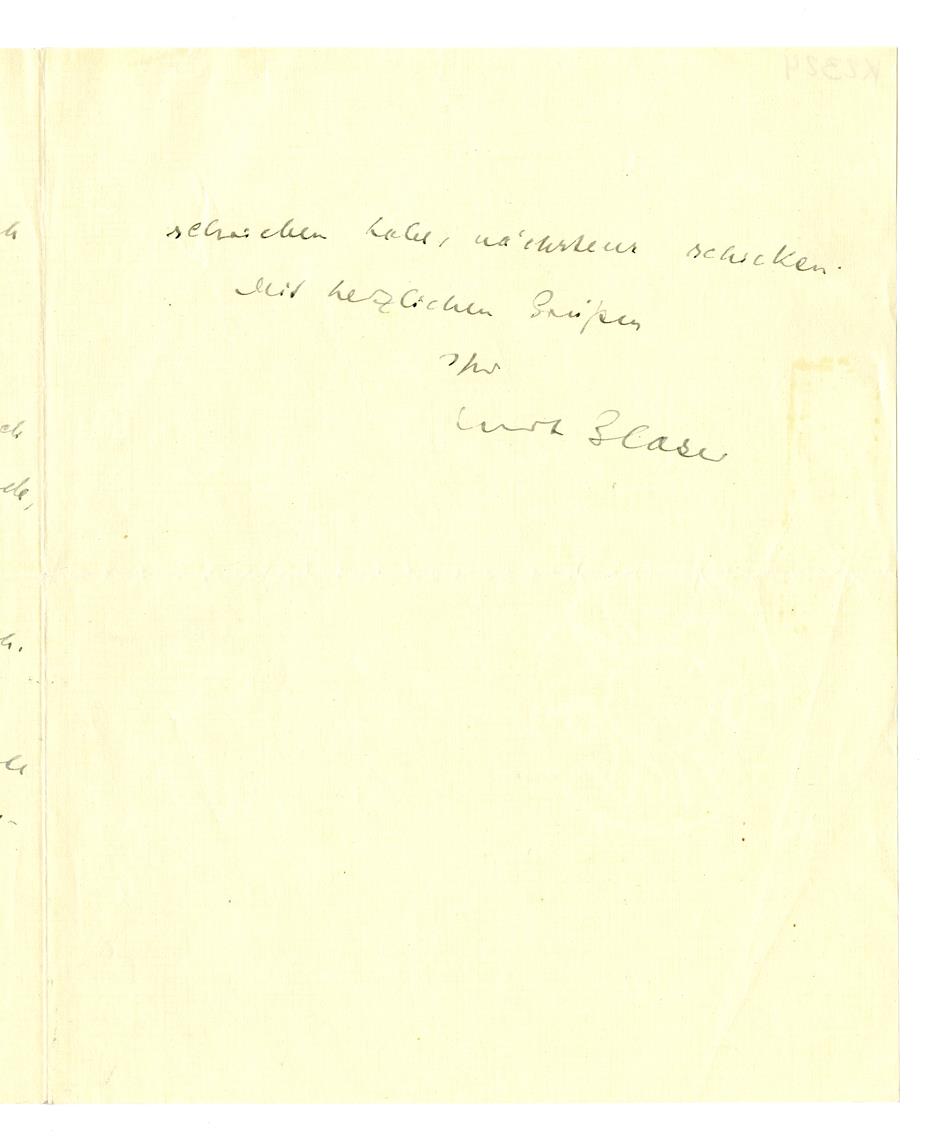 schrieben habe, nächstens schicken.
Mit herzlichen Grüßen
Ihr
Kurt Blaser